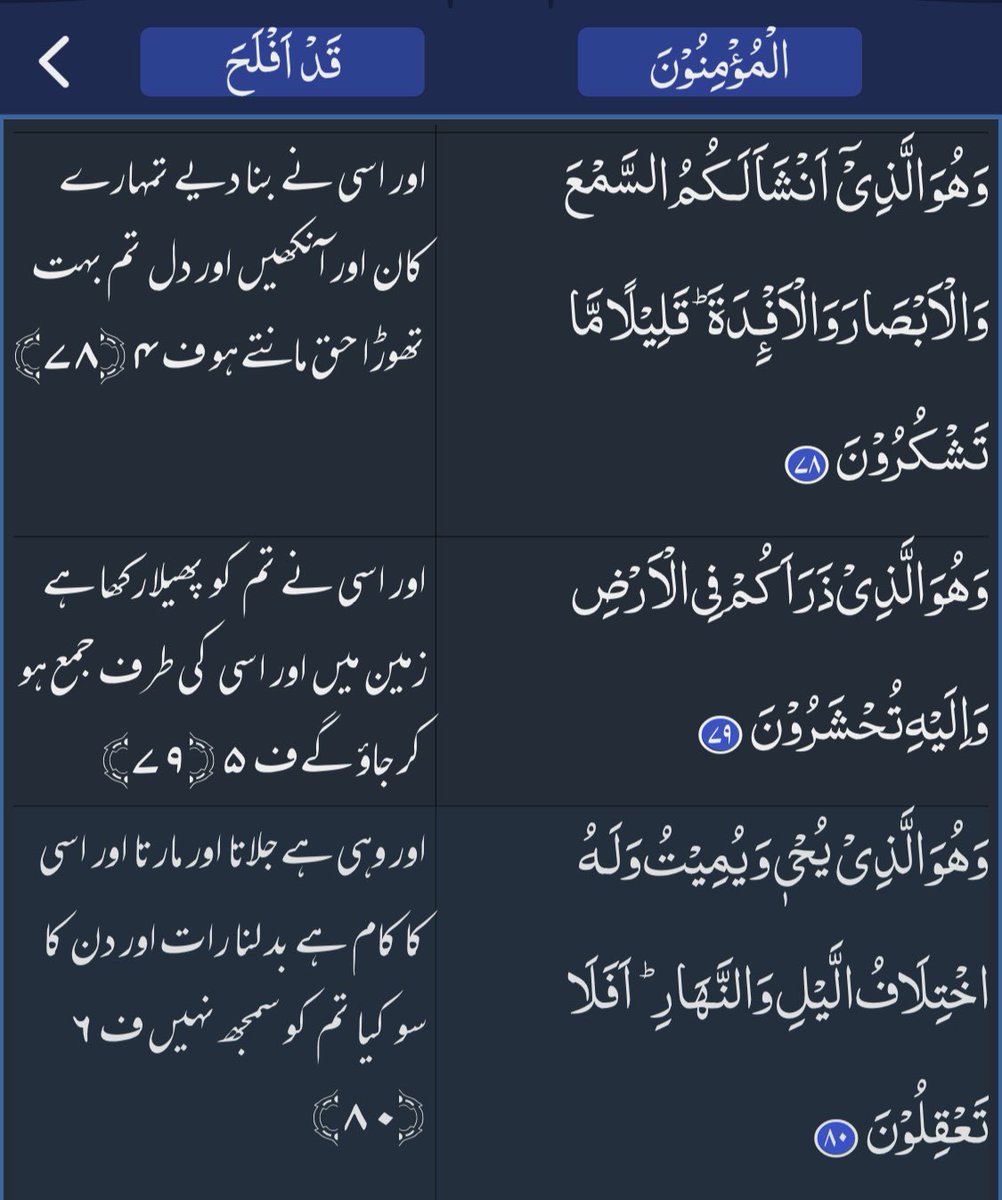 الْمُؤْمِنُوْنَ
قَدْ اَفْلَحَ
وَهُوَ الَّذِیْۤ اَنْشَاَ لَـكُمُ السَّمْعَ
وَالْاَبْصَارَ وَالْاَفْـِٕدَةَ ؕ قَلِيْلًا مَّا
تَشْكُرُوْنَ ﴿۷۸﴾
اور اسی نے بنا دیے تمہارے
کان اور آنکھیں اور دل تم بہت
تھوڑا حق مانتے ہو ف ۴ ﴿۷۸﴾
وَهُوَ الَّذِیْ ذَرَاَكُمْ فِی الْاَرْضِ
وَاِلَيْهِ تُحْشَرُوْنَ ﴿۷۹﴾
اور اسی نے تم کو پھیلا رکھا ہے
زمین میں اور اسی کی طرف جمع ہو
کر جاؤ گے ف ۵ ﴿۷۹﴾
وَهُوَ الَّذِیْ يُحْیٖ وَيُمِيْتُ وَلَهُ
اخْتِلَافُ الَّيْلِ وَالنَّهَارِ ؕ اَفَلَا
تَعْقِلُوْنَ ﴿۸۰﴾
اور وہی ہے جلاتا اور مارتا اور اسی
کا کام ہے بدلنا رات اور دن کا
سو کیا تم کو سمجھ نہیں ف ۶
﴿۸۰﴾